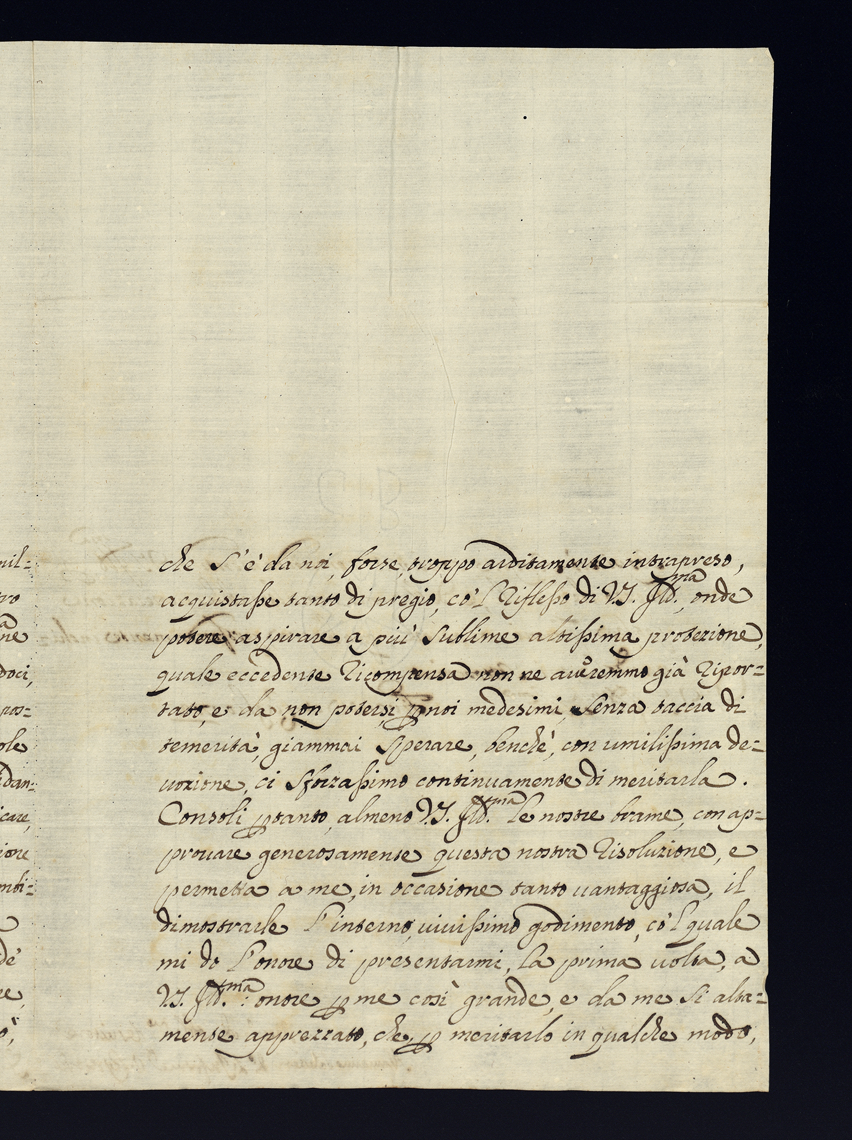 che s'è da noi, forse, troppo arditamente intrapreso,
acquistaſse tanto di pregio, co'l Rifleſso di V.S. Ill.ma, onde
potere aspirare a più sublime altiſsima protezione,
quale eccedente Ricompensa non ne averemmo già Ripor=
tato, e da non potersi p noi medesimi, senza taccia di
temerità, giammai sperare, benchè, con umiliſsima de=
uozione, ci sforzaſsimo continuamente di meritarla.
Consoli ptanto, almeno V.S. Ill.ma le nostre brame, con ap=
prouare generosamente questa nostra Risoluzione, e
permetta a me, in occasione tanto uantaggiosa, il
dimostrarle l'interno, uiuiſsimo godimento, co'l quale
mi do l'onore di presentarmi, la prima uolta, a
V.S. Ill.ma: onore p me così grande, e da me sì alta=
mente apprezzato, che, p meritarlo in qualche modo,